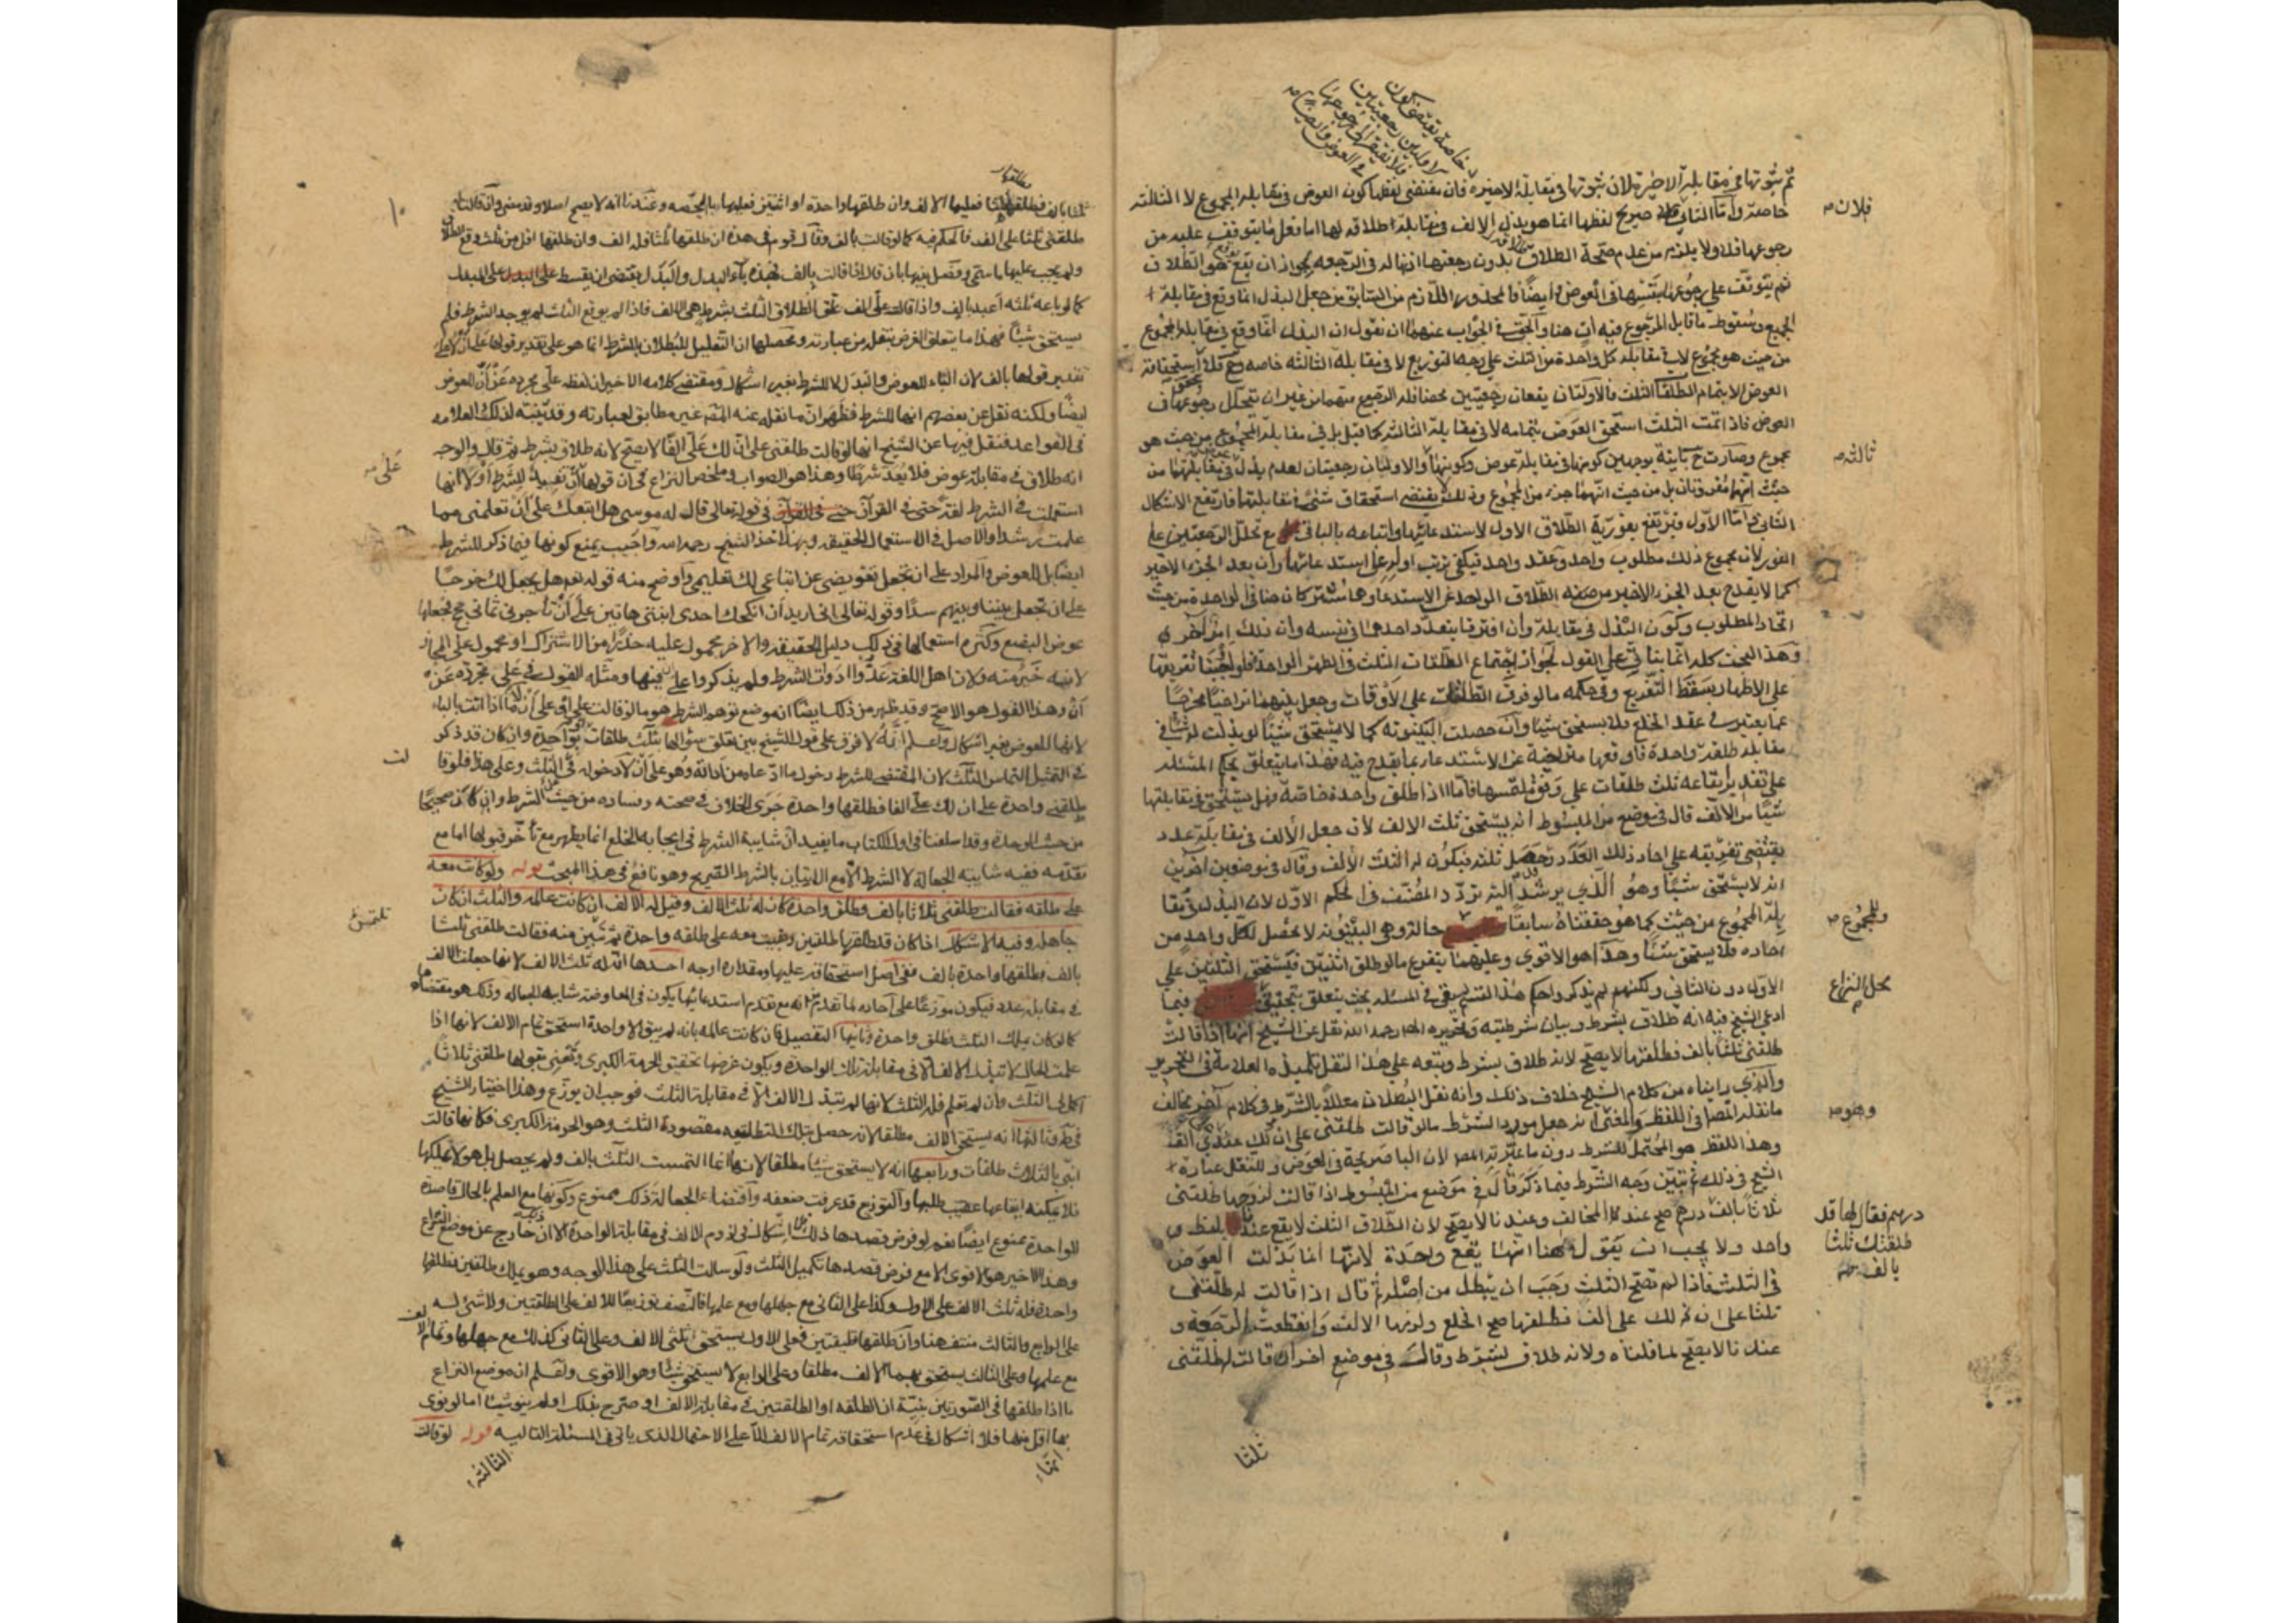 خاصة تقتضى كون
الاولتين رجعيتين
فلا تفتقر الى رجوعها
فى العوض وايضا
ثم ثبوتها فى مقابلة الاخيرة لان ثبوتها فى مقابلة الاخيرة فان مقتضى لفظها كون العوض فى مقابلة المجموع لا الثالثة
خاصة واما الثانى فلا صريح لفظها انما هو بذل الالف فى مقابلة اطلاقه لها اما فعل ما يتوقف عليه من
رجوعها فلا ولا يلزم من عدم صحة الطلاق بدون رجعتها اذنها له فى الرجعة لجواز ان يقع هو الطلاق
ثم يتوقف على رجوعها بنفسها فى العوض وايضا فالمحذور اللازم من السابق من جعل البذل انما وقع فى مقابلة
الجميع وسقوط ما قابل المرجوع فيه آت هنا والحق فى الجواب عنهما ان نقول ان البذل انما وقع فى مقابلة المجموع
من حيث هو مجموع لا فى مقابلة كل واحدة من الثلث على وجه التوزيع لا فى مقابلة الثالثة خاصة وح فلا استحقاقه
العوض الا بتمام الطلقات الثلث فالاولتان يقعان رجعيتين محضا فله الرجوع فيهما من غير ان يتخلل رجوعها فى
العوض فاذا تمت الثلث استحق العوض بتمامه لا فى مقابلة الثالثة كما قيل بل فى مقابلة المجموع من حيث هو
مجموع وصارت ح باينة بوجهين كونها فى مقابلة عوض وكونها والاوليان رجعيتان لعدم بذل فى مقابلتهما من
حيث انهما مفردتان بل من حيث انهما جزء من المجموع وذلك لا يقتضى استحقاق شىء فى مقابلتها فارتفع الاشكال
الثانى واما الاول فيرتفع بفورية الطلاق الاول لاستدعائها واتباعه بالباقى مع تخلل الرجعتين على
الفور لان مجموع ذلك مطلوب واحد وعقد واحد فيكفى ترتب اوله على استدعائها وان بعد الجزء الاخير
كما لا يقدح بعد الجزء الاخير من صيغة الطلاق الواحد عن الاستدعاء وهما مشتركان هنا فى الواحدة من حيث
اتحاد المطلوب وكون البذل فى مقابلة وان افترقا بتعدد احدهما فى نفسه وان ذلك امر آخر
وهذا البحث كله انما بنا فى على القول بجواز اجتماع الطلقات الثلث فى الطهر الواحد فلو اوجبنا تفريقها
على الاطهار سقط التفريع وفى حكمه ما لو فرق الطلقات على الاوقات وجعل بينهما تراخيا مخرجا
عما يعتبر فى عقد الخلع فلا يستحق شيئا وان حصلت البينونة كما لا يستحق شيئا لو بذلت له شيئا فى
مقابلة طلقة واحدة فاوقعها متراخية عن الاستدعاء بما يقدح فيه فهذا ما يتعلق بحكم المسئلة
على تقدير ايقاعه ثلث طلقات على وفق ملتمسها فاما اذا طلق واحدة خاصة فهل يستحق فى مقابلتها
شيئا من الالف قال فى موضع من المبسوط انه يستحق ثلث الالف لان جعل الالف فى مقابلة عدد
يقتضى تفريقه على احاد ذلك العدد وقد حصل ثلثه فيكون له الثلث الالف وقال فى موضعين آخرين
انه لا يستحق شيئا وهو الذى يرشد اليه تردد المصنف فى الحكم الاول لان البذل فى مقا
بلة المجموع من حيث كما هو حققناه سابقا حالة وهى البينونة لا تحصل لكل واحد من
احاده فلا يستحق شيئا وهذا هو الاقوى وعليهما يتفرع ما لو طلق اثنتين فيستحق الثلثين على
الاول دون الثانى ولكنهم لم يذكروا حكم هذا القسم بقى فى المسئلة بحث يتعلق بتحقيق فيما
ادعى الشيخ فيه انه طلاق بشرط وبيان شرطيته وتحريره المص رحمه الله نقل عن الشيخ انها اذا قالت
طلقنى ثلثا بالف فطلقها لا يصح لانه طلاق بشرط وتبعه على هذا النقل تلميذه العلامة فى التحرير
والذى رايناه من كلام الشيخ خلاف ذلك وانه نقل البطلان معللا بالشرط فى كلام آخر يخالف
ما نقله المص فى اللفظ والمعنى انه جعل مورد الشرط ما لو قالت طلقنى على ان لك عندى الفا
وهذا اللفظ هو المحتمل للشرط دون ما عبر به المص لان الباء صريحة فى العوض ولننقل عبارة
الشيخ فى ذلك ثم نبين وجه الشرط فيما ذكر قال فى موضع من المبسوط اذا قالت لزوجها طلقنى
ثلاثا بالف درهم صح عند المخالف وعندنا لا يصح لان الطلاق الثلث لا يقع عندنا بلفظ
واحد ولا يجب ان يقول هنا انها يقع واحدة لانها انما بذلت العوض
فى الثلث فاذا لم تصح الثلث وجب ان يبطل من اصله ثم قال اذا قالت له طلقنى
ثلثا على ان لك على الف فطلقها صح الخلع ولزمها الالف وانقطعت الرجعة و
عندنا لا يصح لما قلناه ولانه طلاق بشرط وقال فى موضع آخر ان قالت له طلقنى
ثلثا
فلان
ثالثه
والمجموع
محل النزاع
وهو
درهم فقال لها قد
طلقتك ثلثا
بالف
ثلثا بالف فطلقها ثلثا فعليها الالف وان طلقها واحدة او اثنتين فعليها بالحصة وعندنا انه لا يصح اصلا وقد مضى وان قالت
طلقنى ثلثا على الف فالحكم فيه كما لو قالت بالف وقال قوم فى هذه ان طلقها ثلثا فله الف وان طلقها اقل من ثلث وقع الطلاق
ولم يجب عليها ما سمى وفصل بينها بان قال اذا قالت بالف فهذه باء البدل والبدل يقتضى ان يقسط على المبدل
كما لو باعه ثلثة اعبد بالف واذا قالت على الف علق الطلاق الثلث بشرط هى الالف فاذا لم يوقع الثلث لم يوجد الشرط فلم
يستحق شيئا فهذا ما يتعلق الغرض بنقله من عبارته ومحصلها ان التعليل للبطلان بالشرط انما هو على تقدير قولها على ان لا على
تقدير قولها بالف لان الباء للعوض والبدل لا للشرط بغير اشكال ومقتضى كلامه الاخير ان لفظه على مجرده عن ان للعوض
ايضا ولكنه نقل عن بعضهم انها للشرط فظهر ان ما نقله عنه المص غير مطابق لعبارته وقد تنبه لذلك العلامه
فى القواعد فنقل فيها عن الشيخ انها لو قالت طلقنى على ان لك على الفا لا يصح لانه طلاق بشرط ثم قال والوجه
انه طلاق فى مقابلة عوض فلا يعد شرطا وهذا هو الصواب وملخص النزاع فى ان قولها ان تفيد للشرط او لا انها
استعملت فى الشرط لغة حتى فى القرآن فى قوله تعالى قال له موسى هل اتبعك على ان تعلمنى مما
علمت رشدا والاصل فى الاستعمال الحقيقة وبهذا اخذ الشيخ رحمه الله واجيب بمنع كونها فيما ذكر للشرط
ايضا بل للعوض والمراد على ان تجعل تعويضى عن اتباعى لك تعليمى واوضح منه قوله تعالى هل يجعل لك خرجا
على ان تجعل بيننا وبينهم سدا وقوله تعالى انى اريد ان انكحك احدى ابنتى هاتين على ان تأجرنى ثمانى حجج فجعلها
عوض البضع وكثرة استعمالها فى ذلك دليل الحقيقة والاخر محمول عليه حذرا من الاشتراك او محمول على المجاز
لانه خير منه ولان اهل اللغة عدوا ادوات الشرط ولم يذكروا على فيها ومثله القول فى على مجرده عن
ان وهذا القول هو الاصح وقد ظهر من ذلك ايضا ان موضع توهم الشرط هو ما لو قالت على او على ان لا اذا اتت بالباء
لانها للعوض بغير اشكال واعلم انه لا فرق على قول الشيخ بين تعلق سؤالها بثلث طلقات او بواحدة وان كان قد ذكر
فى التمثيل التماس الثلث لان المقتضى للشرط دخول ما ادعاه من اداته وهو على ان لا دخوله فى الثلث وعلى هذا فلو قا
طلقنى واحدة على ان لك على الفا فطلقها واحدة جرى الخلاف فى صحته وفساده من حيث الشرط وان كان صحيحا
من حيث الوحدة وقد اسلفنا فى اول الكتاب ما يفيد ان شايبة الشرط فى ايجابه الخلع انما يظهر مع تأخر قبولها اما مع
تقدمه ففيه شايبة الجعالة لا الشرط الا مع الاتيان بالشرط الصريح وهو نافع فى هذا المبحث قوله ولو كانت معه
على طلقه فقالت طلقنى ثلاثا بالف فطلق واحدة كان له ثلث الالف وقيل له الالف ان كانت عالمة والثلث ان كان
جاهلة وفيه الاشكال اذا كان قد طلقها طلقتين وبقيت معه على طلقه واحدة ثم تبين منه فقالت طلقنى ثلثا
بالف فطلقها واحدة بالف ففى اصل استحقاقه عليها ومقداره اوجه احدها ان له ثلث الالف لانها جعلت الالف
فى مقابلة عدد فيكون موزعا على آحاده لما تقدم من انه مع تقدم استدعائها يكون فى المعاوضة شايبة الجعالة وذلك هو مقتضاها
كما لو كان يملك الثلث فطلق واحدة وثانيها التفصيل فان كانت عالمة بانه لم يبق الا واحدة استحق تمام الالف لانها اذا
علمت الحال لا تبذل الالف الا فى مقابلة تلك الواحدة ويكون غرضها تحقيق الحرمة الكبرى وتعنى بقولها طلقنى ثلاثا
اكمل لى الثلث وان لم تعلم فله الثلث لانها لم تبذل الالف الا فى مقابلة الثلث فوجب ان يوزع وهذا اختيار الشيخ
فى ط وثالثها انه يستحق الالف مطلقا لانه حصل بتلك التطليقه مقصودة الثلث وهو الحرمة الكبرى فكانها قالت
ابنى بالثلاث طلقات ورابعها انه لا يستحق شيئا مطلقا لانها انما التمست الثلث بالف ولم يحصل بل هو لا يملكها
فلا يمكنه ايقاعها عقيب طلبها والتوزيع قد عرفت ضعفه واقتضاء الجعالة ذلك ممنوع وكونها مع العلم بالحال قاصدة
للواحدة ممنوع ايضا نعم لو فرض قصدها ذلك فلا اشكال فى لزوم الالف فى مقابلة الواحدة الا ان ذلك خارج عن موضع النزاع
وهذا الاخير هو الاقوى الا مع فرض قصدها تكميل الثلث ولو سالت الثلث على هذا الوجه وهو يملك طلقتين فطلقها
واحدة فله ثلث الالف على الاول وكذا على الثانى مع جهلها ومع علمها فالنصف توزيعا للالف على الطلقتين ولا شىء له
على الرابع والثالث منتف هنا وان طلقها طلقتين فعلى الاول يستحق ثلثى الالف وعلى الثانى كذلك مع جهلها وتمام الالف
مع علمها وعلى الثالث يستحق بهما الالف مطلقا وعلى الرابع لا يستحق شيئا وهو الاقوى ولتعلم ان موضع النزاع
ما اذا طلقها فى الصورتين بنية ان الطلقة او الطلقتين فى مقابلة الالف او صرح بذلك او لم ينو شيئا اما لو نوى
بها اقل منها فلا اشكال فى عدم استحقاقه تمام الالف الا على الاحتمال الذى ياتى فى المسئلة التاليه قوله لو قالت
الثالثه
١٠
على
لت